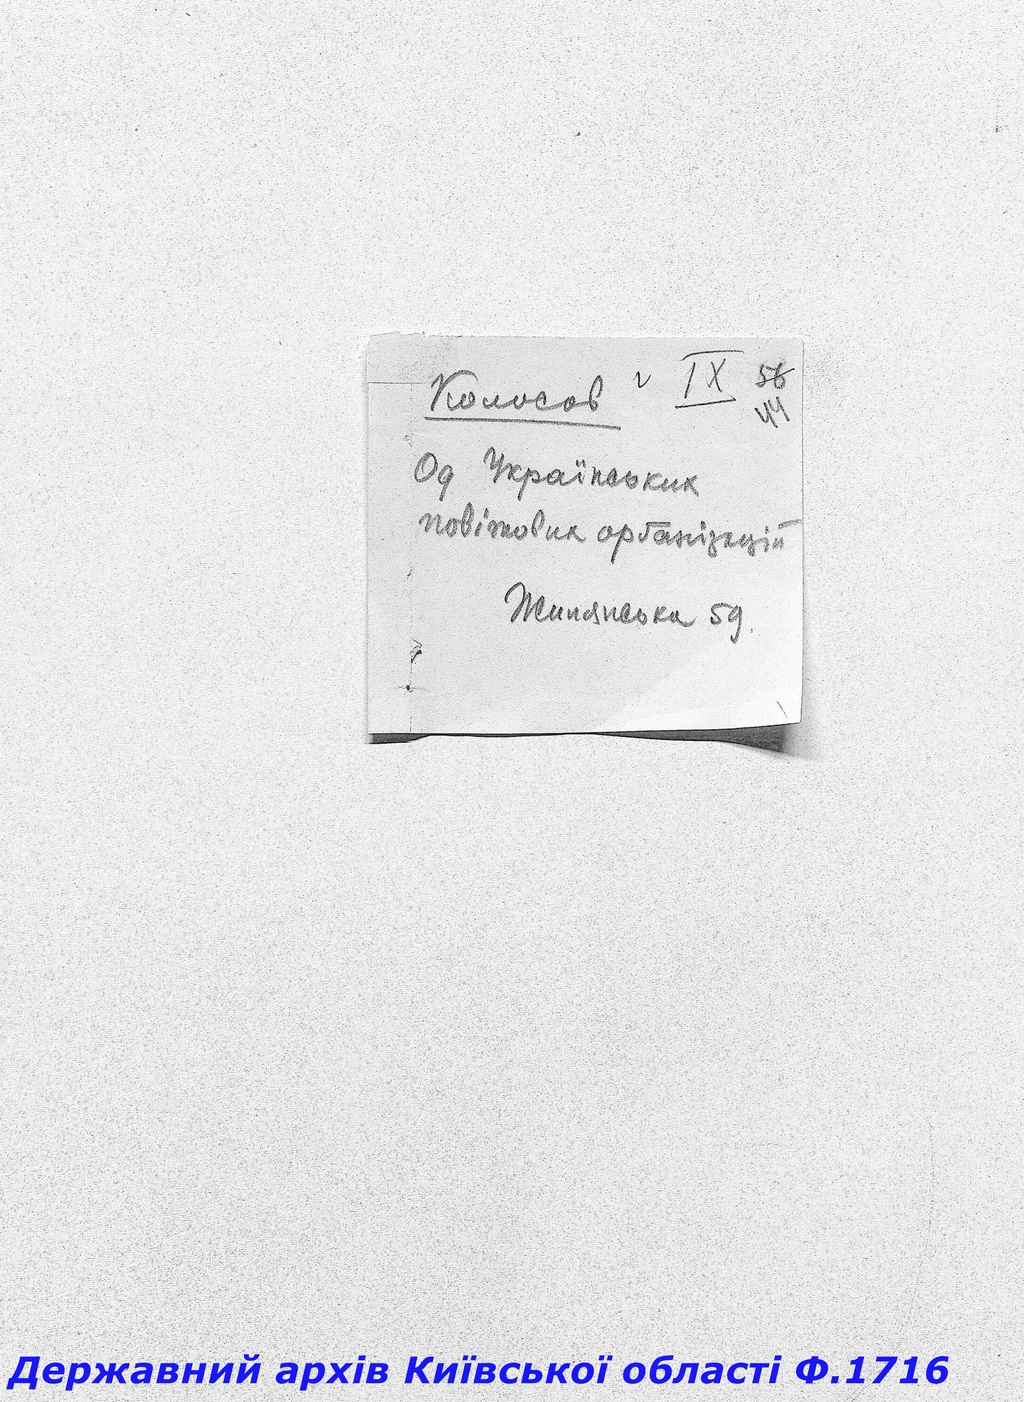 Колосов ✓ IX 56
44
Од Українських
повітових організацій
Жилянська 59.
Державний архів Київської області Ф.1716